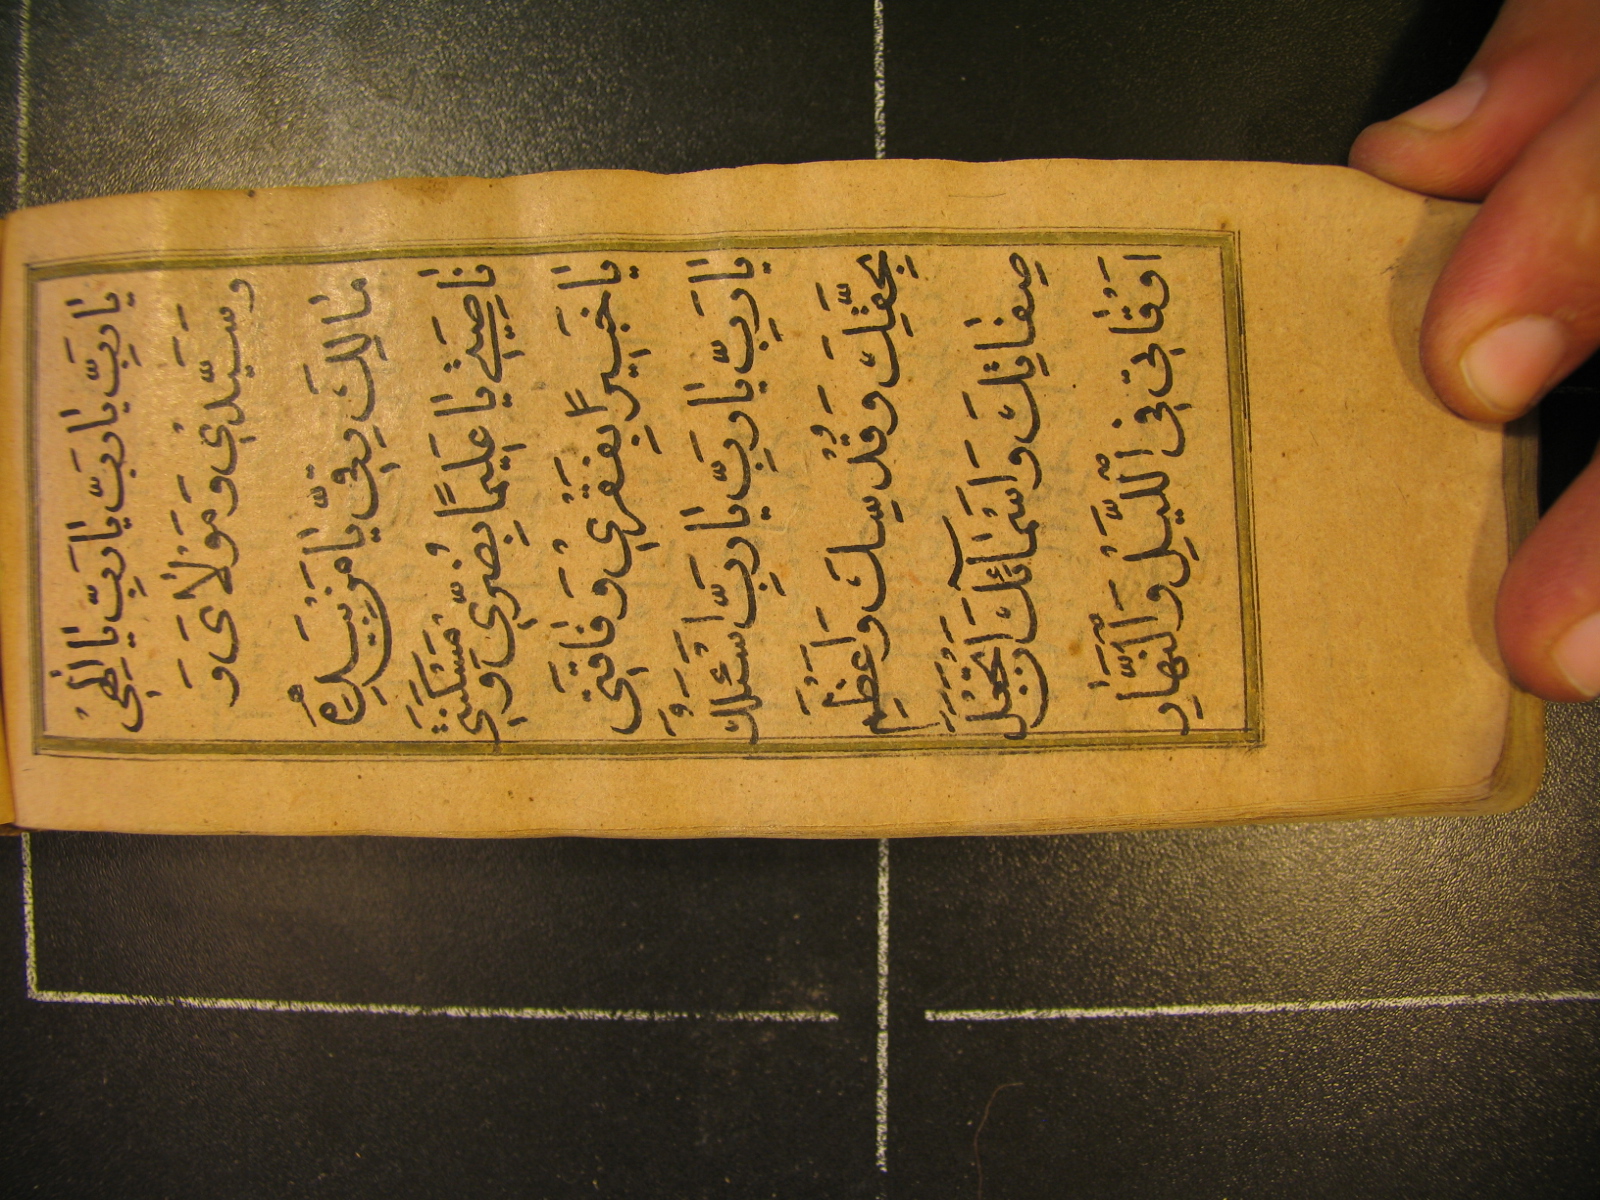 يَا رَبِّ يَا رَبِّ يَا رَبِّ يَا اِلٰهِىْ
وَسَيِّدِىْ وَمَوْلَاىَ وَ
مَالِكَ رِقِّى يَا مَنْ بِيَدِهِ
نَاصِيَتِىْ يَا عَلِيْمًا بِضُرِّىْ وَمَسْكَنَتِىْ
يَا خَبِيْرًا بِفَقْرِىْ وَفَاقَتِى
يَا رَبِّ يَا رَبِّ يَا رَبِّ اَسْئَلُكَ
بِحَقِّكَ وَقُدْسِكَ وَاَعْظَمِ
صِفَاتِكَ وَاَسْمَآئِكَ اَنْ تَجْعَلَ
اَوْقَاتِى فِى اللَّيْلِ وَالنَّهَارِ